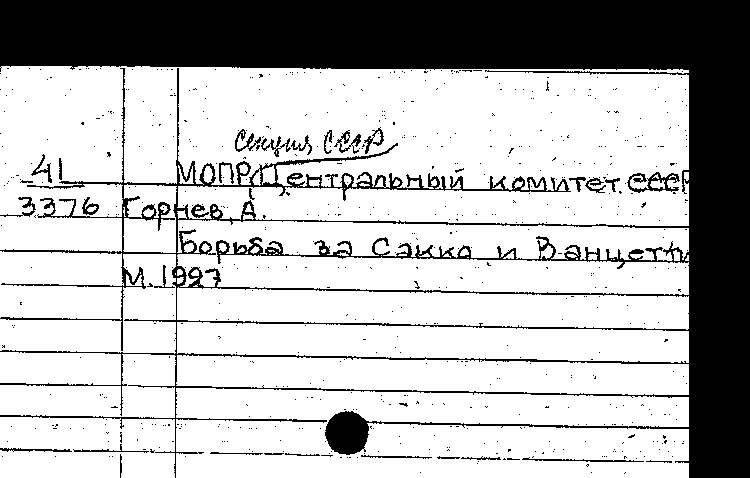 Секция СССР
4L МОПР/Центральный комитет. СССР
3376 Горнев, А.
Борьба за Сакко и Ванцетти
М. 1927